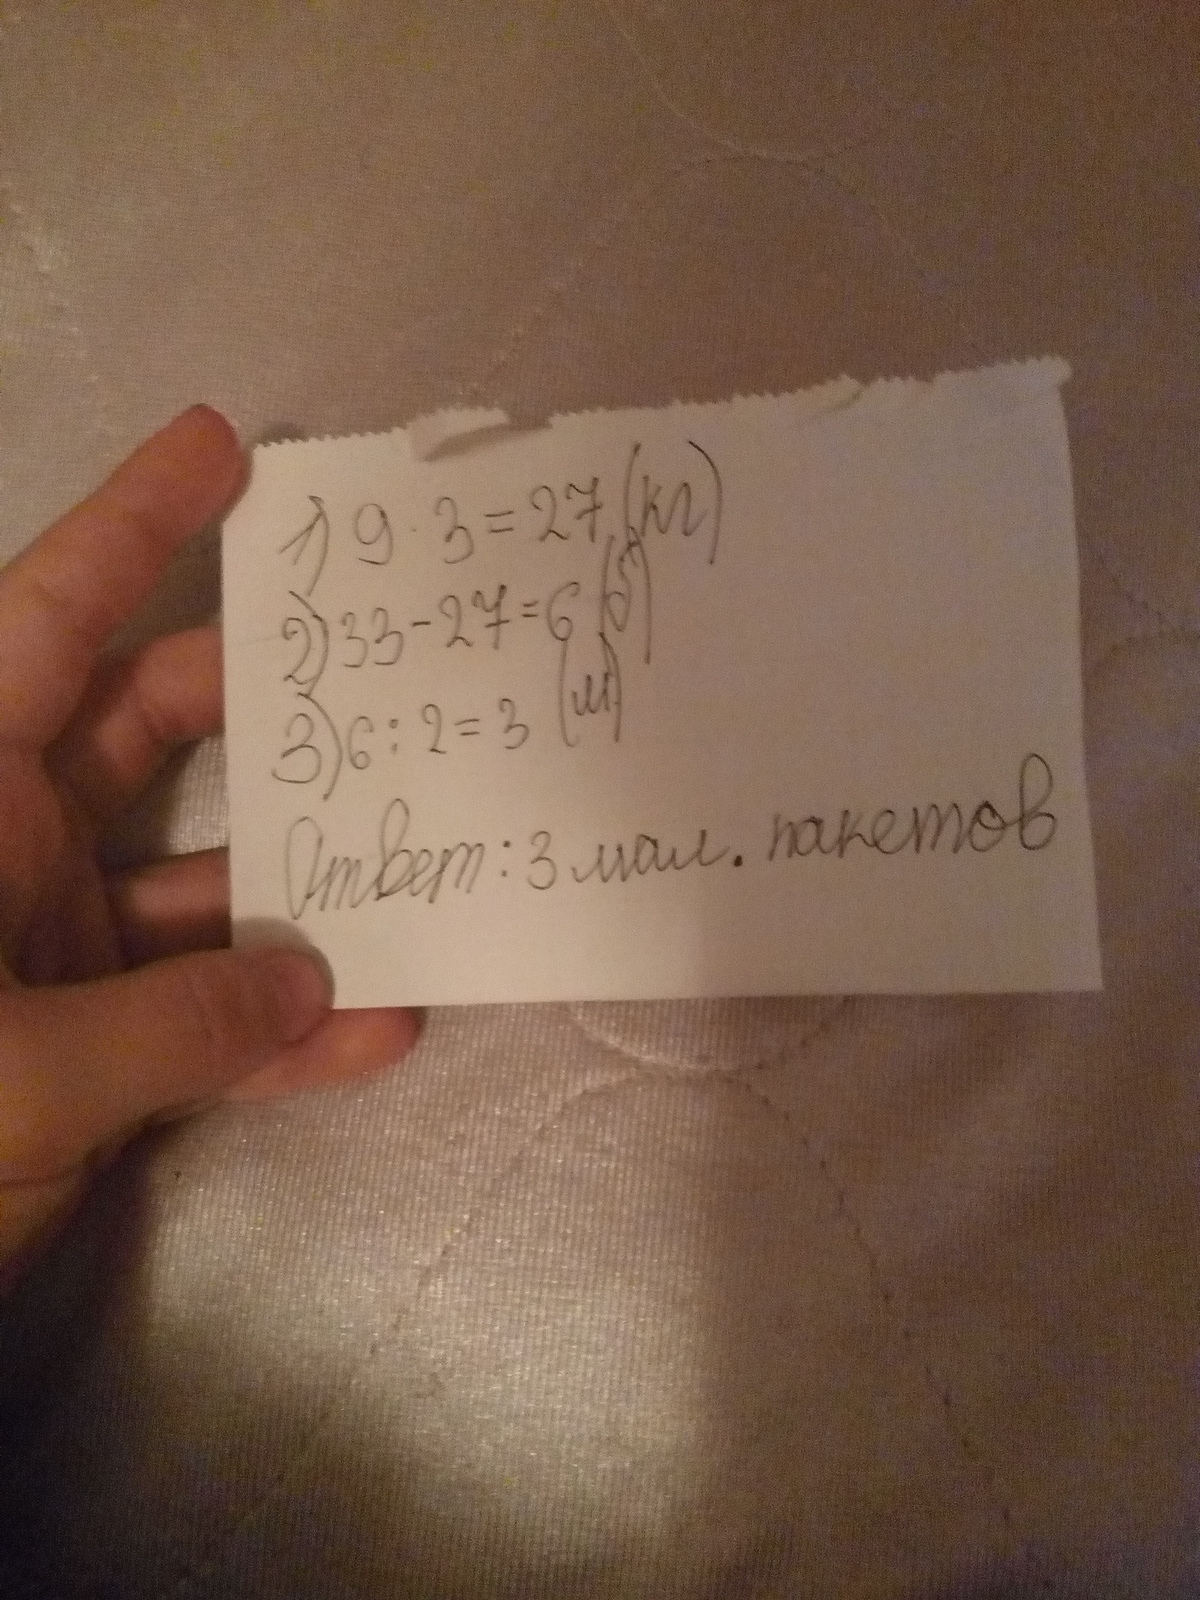 1) 9 · 3 = 27 (кг)
2) 33 - 27 = 6 (б)
3) 6 : 2 = 3 (м)
Ответ: 3 мал. пакетов